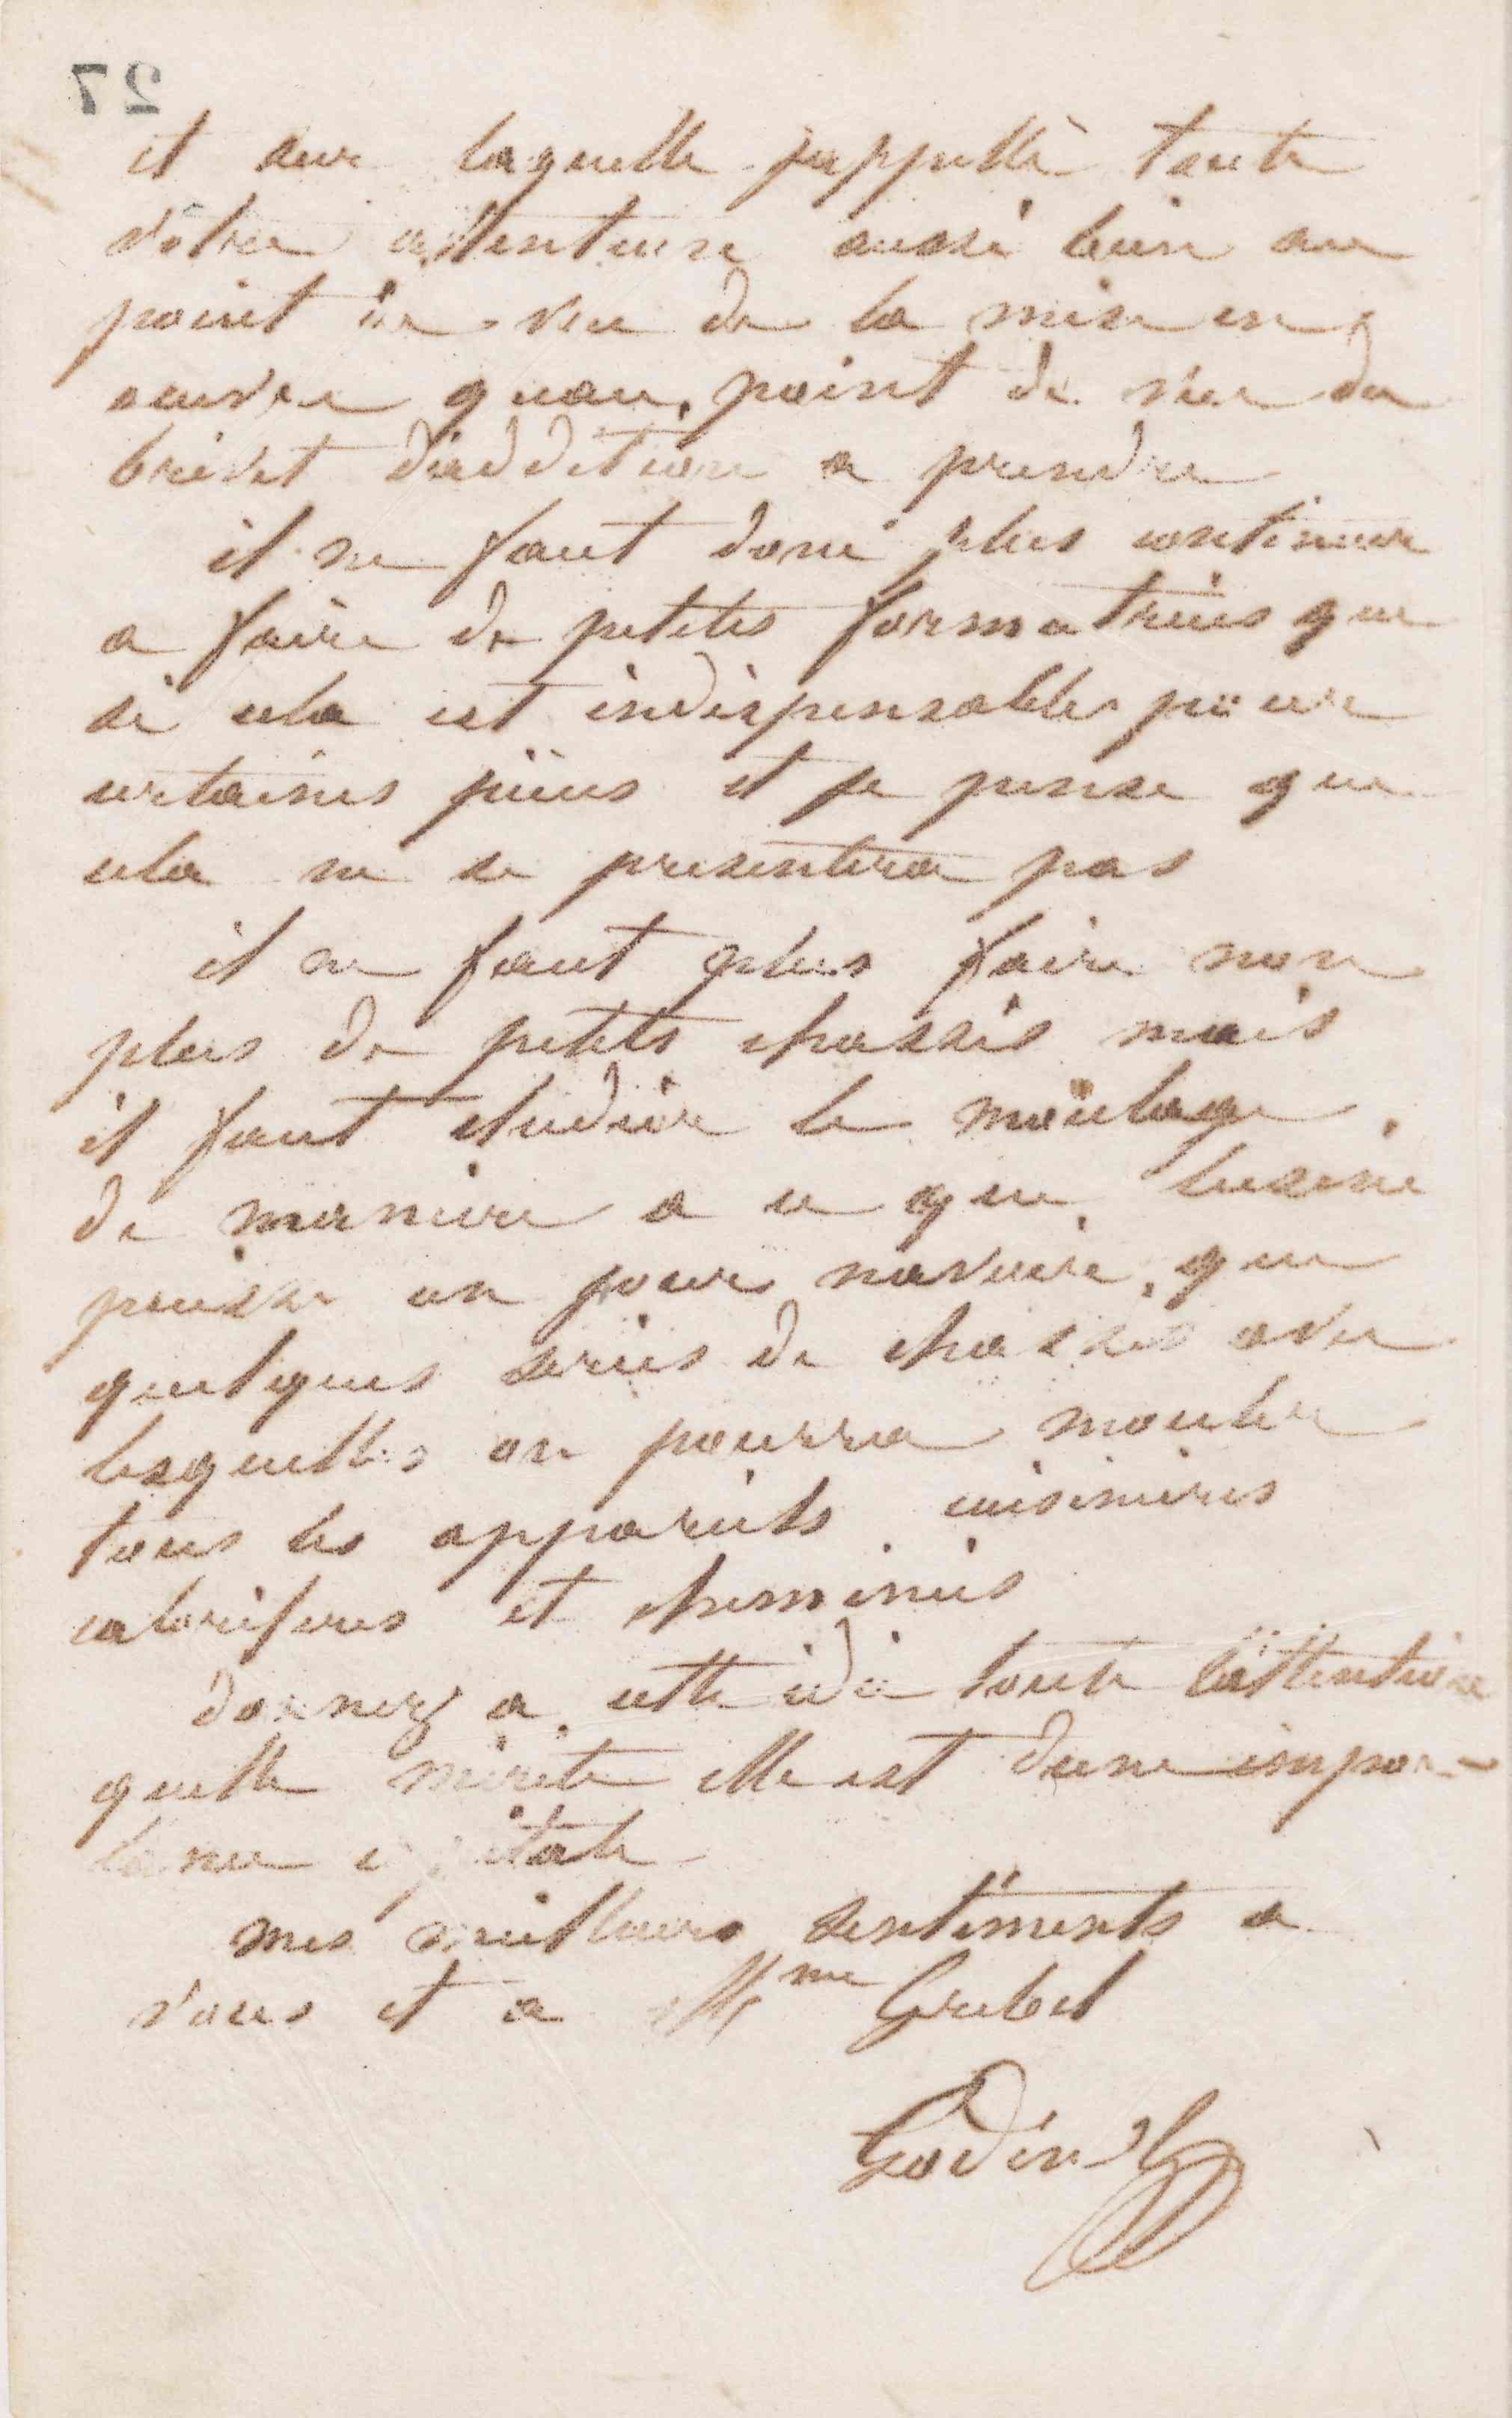 27
et sur laquelle j'appelle toute
vôtre attention aussi bien au
point de vue de la mise en
œuvre quau point de vue du
brevet d'addition a prendre
il ne faut donc plus continuer
a faire de petites formatries que
si cela est indispensable pour
certaines pièces et je pense que
cela ne se presentera pas
il ne faut plus faire non
plus de petits chassis mais
il faut etudier le moulage
de maniere a ce que lusine
puisse un jour navoir que
quelques séries de chassis avec
lesquelles on pourra mouler
tous les appareils cuisinieres
caloriferes et cheminées
donnez a cette idée toute l'attention
quelle mérite elle est dune impor-
tance capitale
mes meilleurs sentiments a
vous et a Mme Grebel
Godin